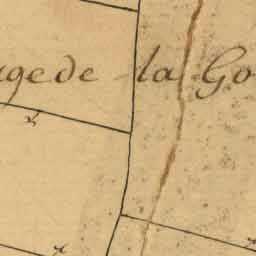 age de la Go